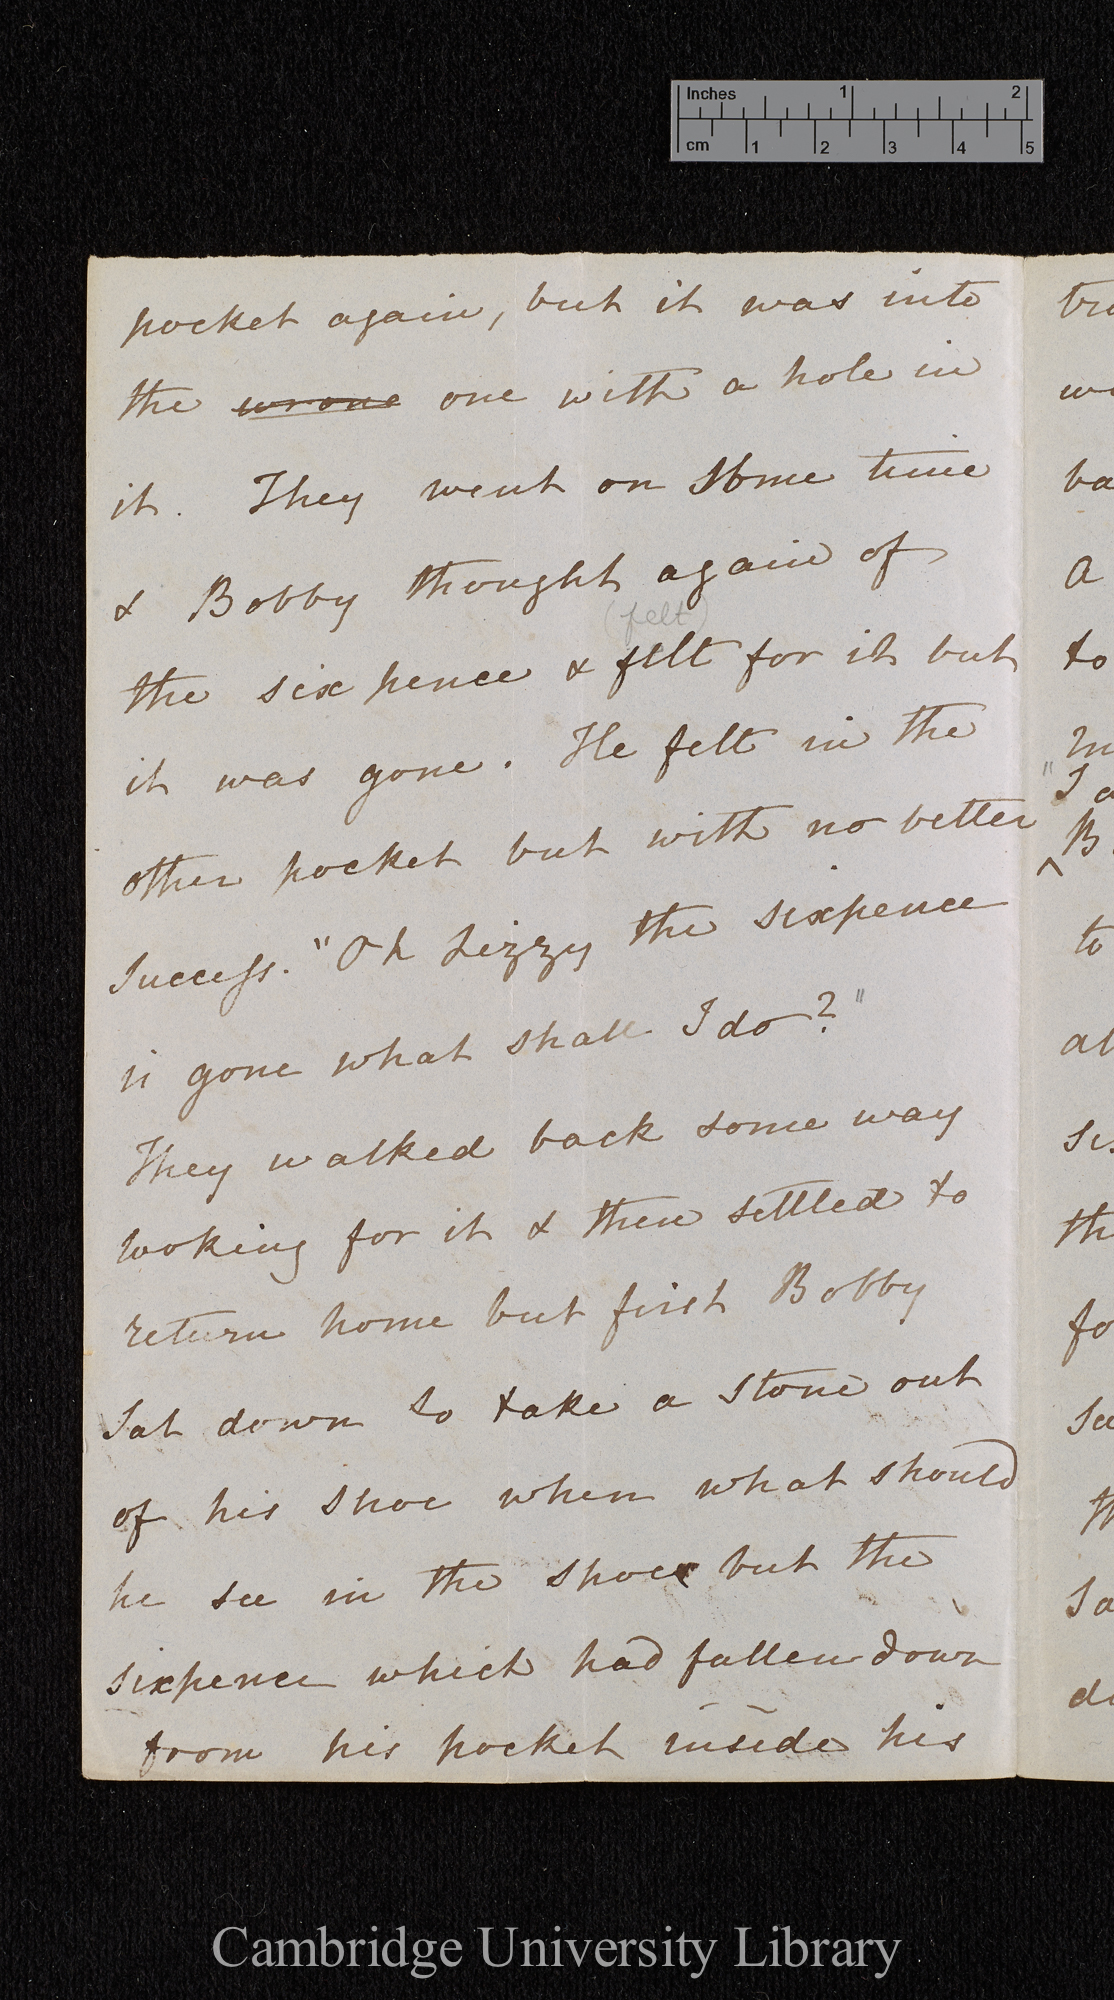 Inches 1 2
cm 1 2 3 4 5
pocket again, but it was into
the wrone one with a hole in
it. They went on some time
& Bobby thought again of
(felt)
the six pence & felt for it but
it was gone. He felt in the
other pocket but with no better
success. "Oh Lizzy the sixpence
is gone what shall I do?"
They walked back some way
looking for it & then settled to
return home but first Bobby
Sat down to take a stone out
of his shoe when what should
he see in the shoe but the
sixpence which had fallen down
from his pocket inside his
Cambridge University Library